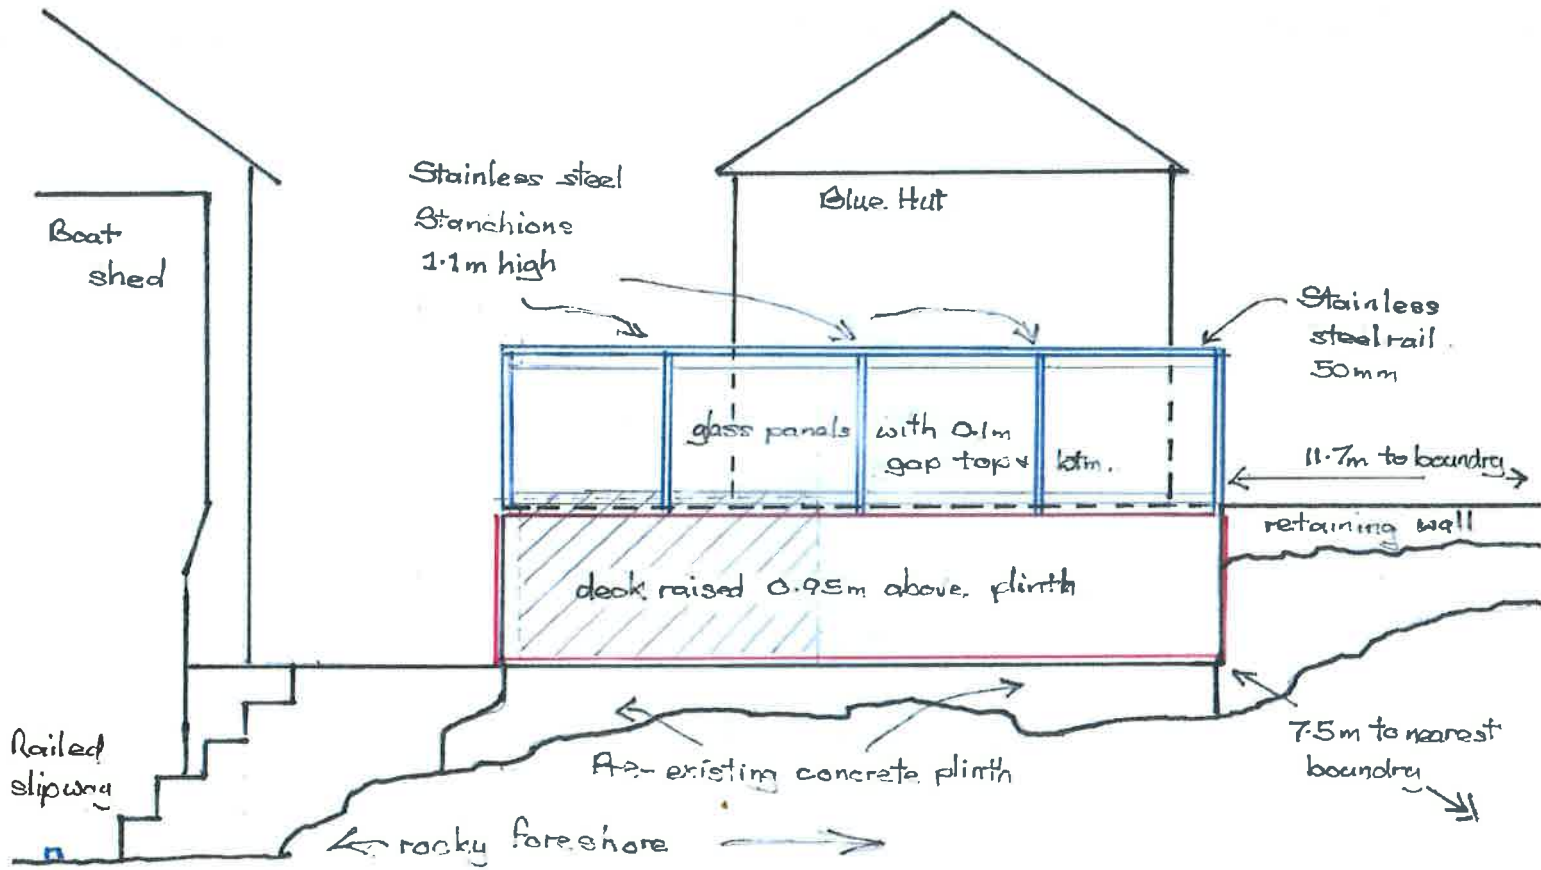 Stainless steel
Stanchions
1.1m high
Blue Hut
Boat
shed
Stainless
steel rail
50mm
glass panels with 0.1m
gap top & botm.
11.7m to boundry
retaining wall
deck raised 0.95m above plinth
Railed
slipway
Pre-existing concrete plinth
7.5m to nearest
boundry
rocky foreshore